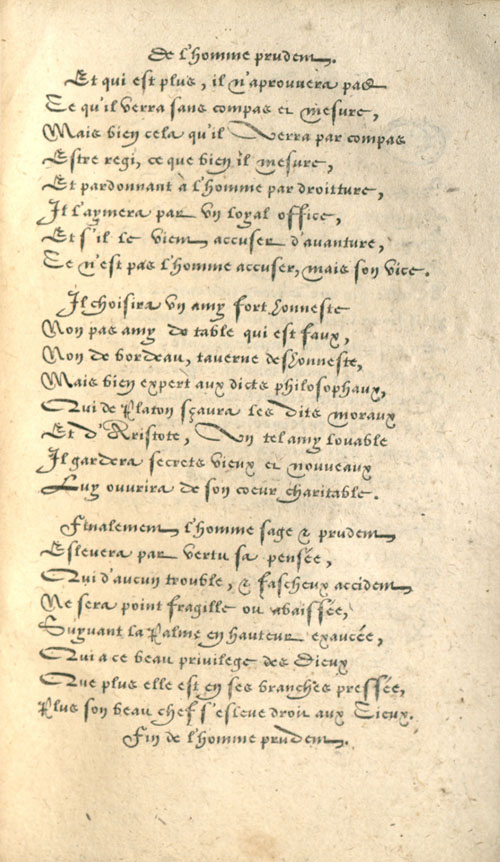 De l'homme prudent.
Et qui est plus, il n'aprouvera pas
Ce qu'il verra sans compas et mesure,
Mais bien cela qu'il Verra par compas
Estre regi, ce que bien il mesure,
Et pardonnant à l'homme par droitture,
Il l'aymera par vn loyal office,
Et s'il le vient accuser d'auanture,
Ce n'est pas l'homme accuser, mais son vice.
Il choisira vn amy fort honneste
Non pas amy de table qui est faux,
Non de bordeau, tauerne deshonneste,
Mais bien expert aux dicts philosophaux,
Qui de Platon sçaura les dits moraux
Et d'Aristote, Vn tel amy louable
Il gardera secrets vieux et nouueaux
Luy ouurira de son coeur charitable.
Finalement l'homme sage & prudent
Esleuera par vertu sa pensée,
Qui d'aucun trouble, & fascheux accident
Ne sera point fragille ou abaissée,
Suyuant la Palme en hauteur exaucée,
Qui a ce beau priuilege des Dieux
Que plus elle est en ses branches pressée,
Plus son beau chef s'esleue droit aux Cieux.
Fin de l'homme prudent.